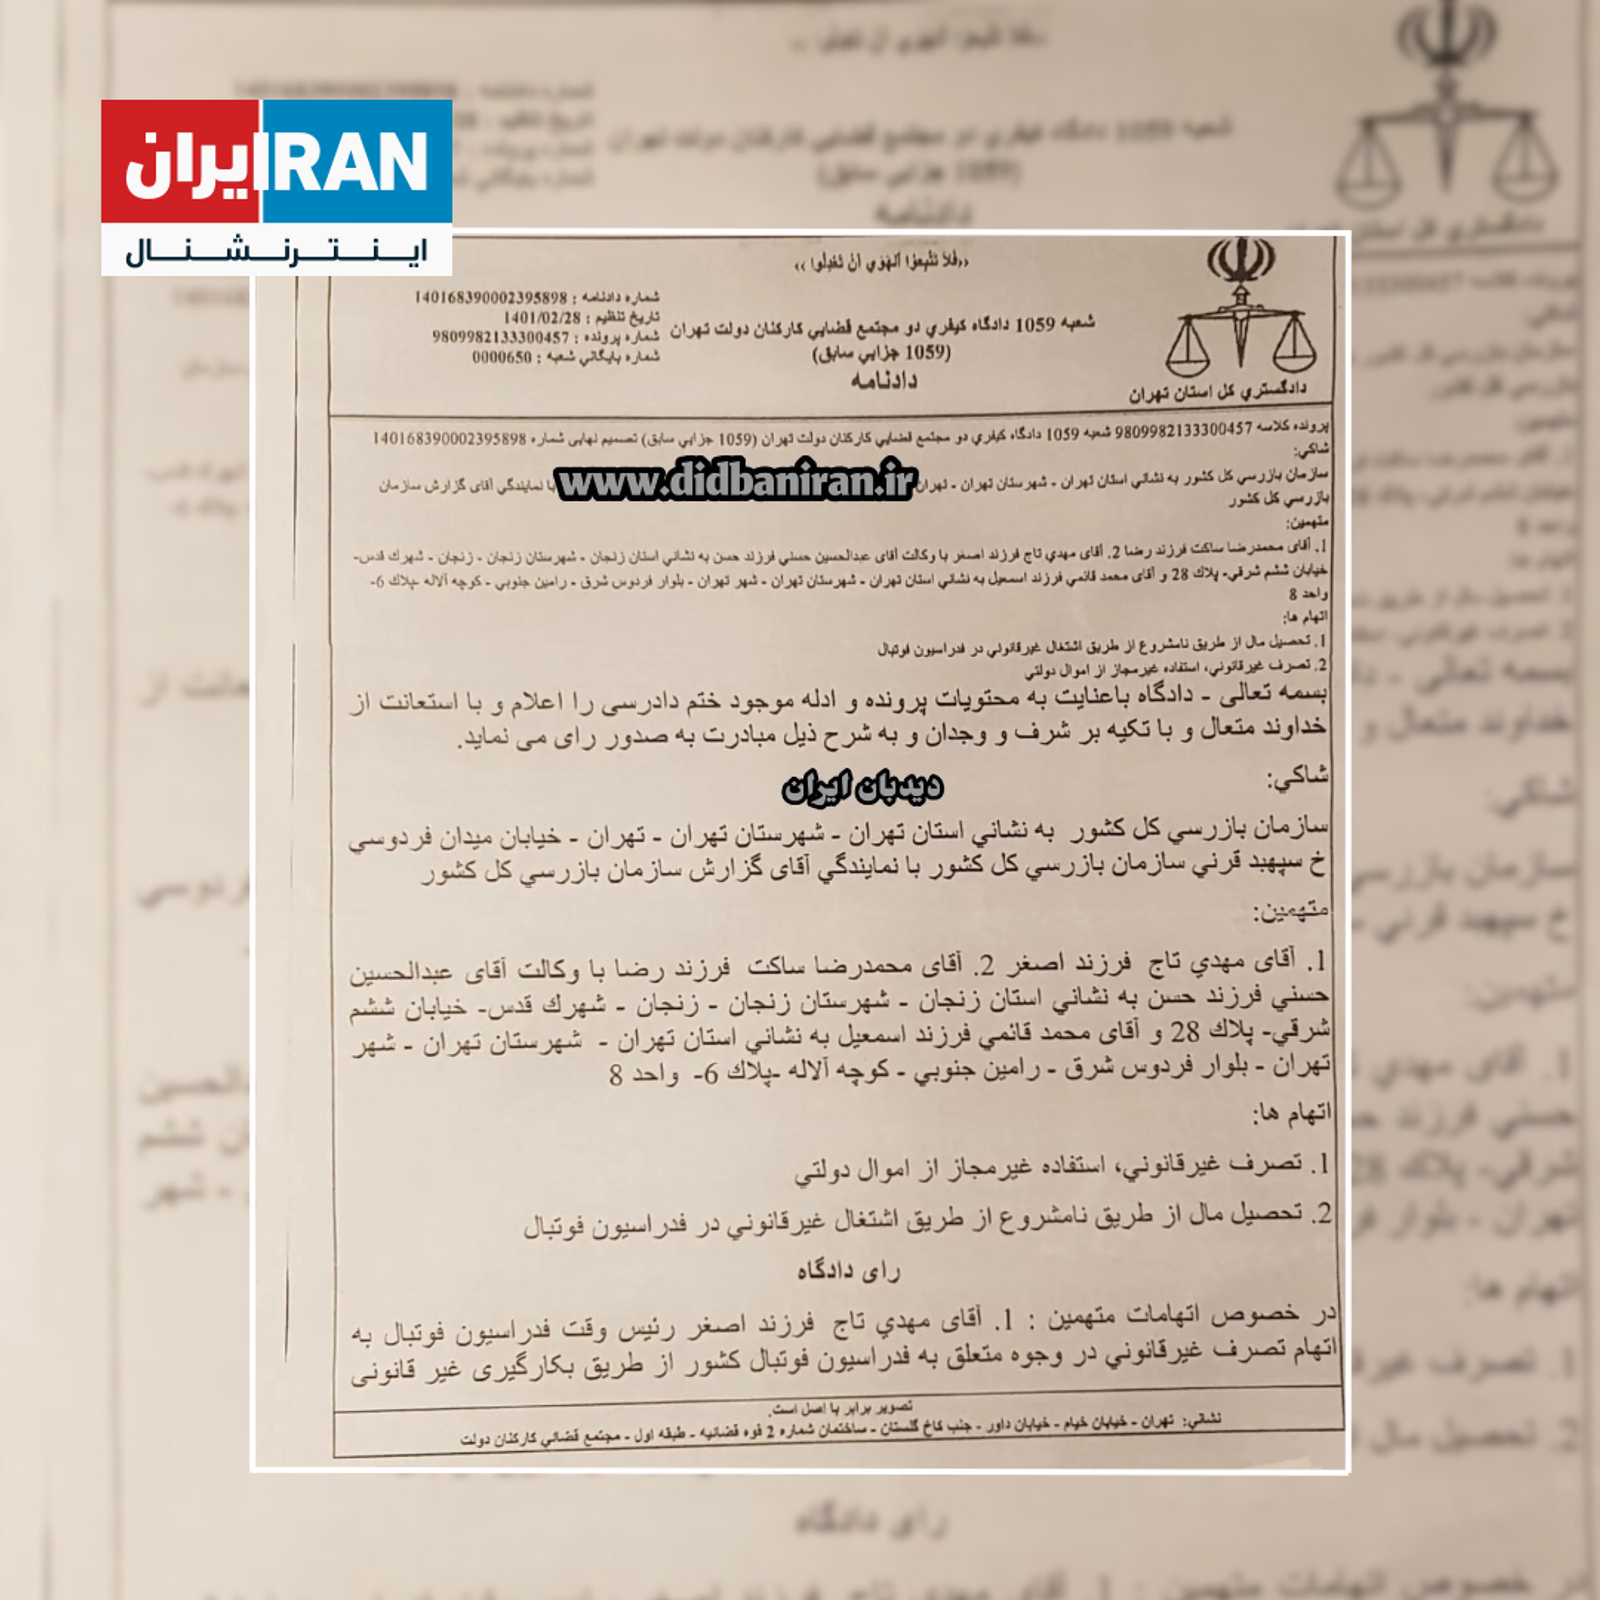 ایران IRAN
اینترنشنال
«فلا تتبعوا الهوي أن تعدلوا»
شماره دادنامه : 140168390002395898
تاریخ تنظیم : 1401/02/28
شماره پرونده : 9809982133300457
شماره بایگاني شعبه : 0000650
شعبه 1059 دادگاه کیفري دو مجتمع قضایي کارکنان دولت تهران
(1059 جزایي سابق)
دادنامه
دادگستري کل استان تهران
پرونده کلاسه 9809982133300457 شعبه 1059 دادگاه کیفري دو مجتمع قضایي کارکنان دولت تهران (1059 جزایي سابق) تصمیم نهایی شماره 140168390002395898
شاکي:
سازمان بازرسي کل کشور به نشاني استان تهران - شهرستان تهران - تهران www.didbaniran.ir با نمایندگي آقای گزارش سازمان
بازرسي کل کشور
متهمین:
1. آقای محمدرضا ساکت فرزند رضا 2. آقای مهدي تاج فرزند اصغر با وکالت آقای عبدالحسین حسني فرزند حسن به نشاني استان زنجان - شهرستان زنجان - زنجان - شهرك قدس-
خیابان ششم شرقي- پلاك 28 و آقای محمد قائمي فرزند اسمعیل به نشاني استان تهران - شهرستان تهران - شهر تهران - بلوار فردوس شرق - رامین جنوبي - کوچه آلاله -پلاك 6-
واحد 8
اتهام ها:
1. تحصیل مال از طریق نامشروع از طریق اشتغال غیرقانوني در فدراسیون فوتبال
2. تصرف غیرقانوني، استفاده غیرمجاز از اموال دولتي
بسمه تعالی - دادگاه باعنایت به محتویات پرونده و ادله موجود ختم دادرسی را اعلام و با استعانت از
خداوند متعال و با تکیه بر شرف و وجدان و به شرح ذیل مبادرت به صدور رای می نماید.
دیدبان ایران
شاکي:
سازمان بازرسي کل کشور به نشاني استان تهران - شهرستان تهران - تهران - خیابان میدان فردوسي
خ سپهبد قرني سازمان بازرسي کل کشور با نمایندگي آقای گزارش سازمان بازرسي کل کشور
متهمین:
1. آقای مهدي تاج فرزند اصغر 2. آقای محمدرضا ساکت فرزند رضا با وکالت آقای عبدالحسین
حسني فرزند حسن به نشاني استان زنجان - شهرستان زنجان - زنجان - شهرك قدس- خیابان ششم
شرقي- پلاك 28 و آقای محمد قائمي فرزند اسمعیل به نشاني استان تهران - شهرستان تهران - شهر
تهران - بلوار فردوس شرق - رامین جنوبي - کوچه آلاله -پلاك 6- واحد 8
اتهام ها:
1. تصرف غیرقانوني، استفاده غیرمجاز از اموال دولتي
2. تحصیل مال از طریق نامشروع از طریق اشتغال غیرقانوني در فدراسیون فوتبال
رای دادگاه
در خصوص اتهامات متهمین : 1. آقای مهدي تاج فرزند اصغر رئیس وقت فدراسیون فوتبال به
اتهام تصرف غیرقانوني در وجوه متعلق به فدراسیون فوتبال کشور از طریق بکارگیری غیر قانونی
تصویر برابر با اصل است.
نشاني: تهران - خیابان خیام - خیابان داور - جنب کاخ گلستان - ساختمان شماره 2 قوه قضائیه - طبقه اول - مجتمع قضائي کارکنان دولت